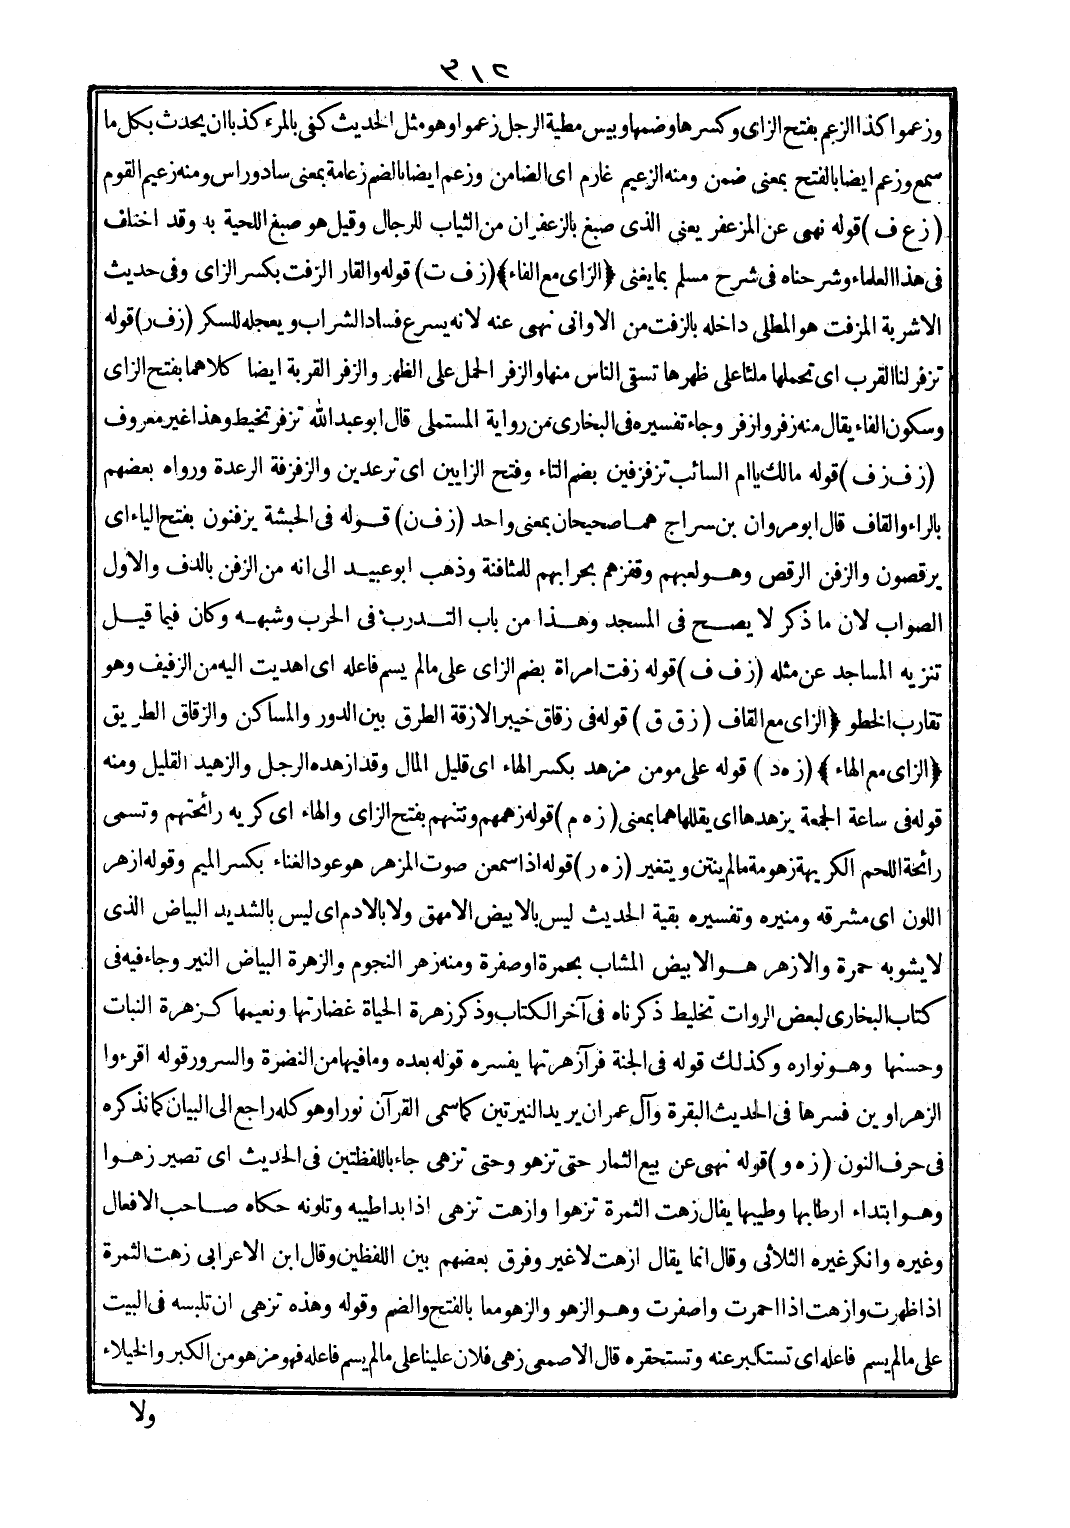 ٣١٢
وزعموا كذا الزعم بفتح الزاى وكسرها وضمها وبيس مطية الرجل زعموا وهو مثل الحديث كفى بالمرء كذبا ان يحدث بكل ما
سمع وزعم ايضا بالفتح بمعنى ضمن ومنه الزعيم غارم اى الضامن وزعم ايضا بالضم زعامة بمعنى ساد وراس ومنه زعيم القوم
(ز ع ف) قوله نهى عن المزعفر يعنى الذى صبغ بالزعفران من الثياب للرجال وقيل هو صبغ اللحية به وقد اختلف
فى هذا العلماء وشرحناه فى شرح مسلم بما يغنى ﴿الزاى مع الفاء﴾ (ز ف ت) قوله والقار الزفت بكسر الزاى وفى حديث
الاشربة المزفت هو المطلى داخله بالزفت من الاوانى نهى عنه لانه يسرع فساد الشراب ويعجله للسكر (ز ف ر) قوله
تزفر لنا القرب اى تحملها ملئا على ظهرها تسقى الناس منها والزفر الحمل على الظهر والزفر القربة ايضا كلاهما بفتح الزاى
وسكون الفاء يقال منه زفر وازفر وجاء تفسيره فى البخارى من رواية المستملى قال ابو عبد الله تزفر تخيط وهذا غير معروف
(ز ف ز ف) قوله مالك يا ام السائب تزفزفين بضم التاء وفتح الزايين اى ترعدين والزفزفة الرعدة ورواه بعضهم
بالراء والقاف قال ابو مروان بن سراج هما صحيحان بمعنى واحد (ز ف ن) قوله فى الحبشة يزفنون بفتح الياء اى
يرقصون والزفن الرقص وهو لعبهم وقفزهم بحرابهم للمثافنة وذهب ابو عبيد الى انه من الزفن بالدف والاول
الصواب لان ما ذكر لا يصح فى المسجد وهذا من باب التدرب فى الحرب وشبهه وكان فيما قيل
تنزيه المساجد عن مثله (ز ف ف) قوله زفت امراة بضم الزاى على مالم يسم فاعله اى اهديت اليه من الزفيف وهو
تقارب الخطو ﴿الزاى مع القاف (ز ق ق) قوله فى زقاق خيبر الازقة الطرق بين الدور والمساكن والزقاق الطريق
﴿الزاى مع الهاء﴾ (ز ه د) قوله على مومن مزهد بكسر الهاء اى قليل المال وقد ازهده الرجل والزهيد القليل ومنه
قوله فى ساعة الجمعة يزهدها اى يقللها هما بمعنى (ز ه م) قوله زهمهم ونتنهم بفتح الزاى والهاء اى كريه رائحتهم وتسمى
رائحة اللحم الكريهة زهومة مالم ينتن ويتغير (ز ه ر) قوله اذا سمعن صوت المزهر هو عود الغناء بكسر الميم وقوله ازهر
اللون اى مشرقه ومنيره وتفسيره بقية الحديث ليس بالابيض الامهق ولا بالادم اى ليس بالشديد البياض الذى
لا يشوبه حمرة والازهر هو الابيض المشاب بحمرة او صفرة ومنه زهر النجوم والزهرة البياض النير وجاء فيه فى
كتاب البخارى لبعض الروات تخليط ذكرناه فى آخر الكتاب وذكر زهرة الحياة غضارتها ونعيمها كزهرة النبات
وحسنها وهو نواره وكذلك قوله فى الجنة فرآ زهرتها يفسره قوله بعده وما فيها من النضرة والسرور قوله اقرءوا
الزهراوين فسرها فى الحديث البقرة وآل عمران يريد النيرتين كما سمى القرآن نورا وهو كله راجع الى البيان كما نذكره
فى حرف النون (ز ه و) قوله نهى عن بيع الثمار حتى تزهو وحتى تزهى جاء باللفظتين فى الحديث اى تصير زهوا
وهو ابتداء ارطابها وطيبها يقال زهت الثمرة تزهوا وازهت تزهى اذا بدا طيبه وتلونه حكاه صاحب الافعال
وغيره وانكر غيره الثلاثى وقال انما يقال ازهت لا غير وفرق بعضهم بين اللفظين وقال ابن الاعرابى زهت الثمرة
اذا ظهرت وازهت اذا احمرت واصفرت وهو الزهو والزهو معا بالفتح والضم وقوله وهذه تزهى ان تلبسه فى البيت
على مالم يسم فاعله اى تستكبر عنه وتستحقره قال الاصمعى زهى فلان علينا على مالم يسم فاعله فهو مزهو من الكبر والخيلاء
ولا